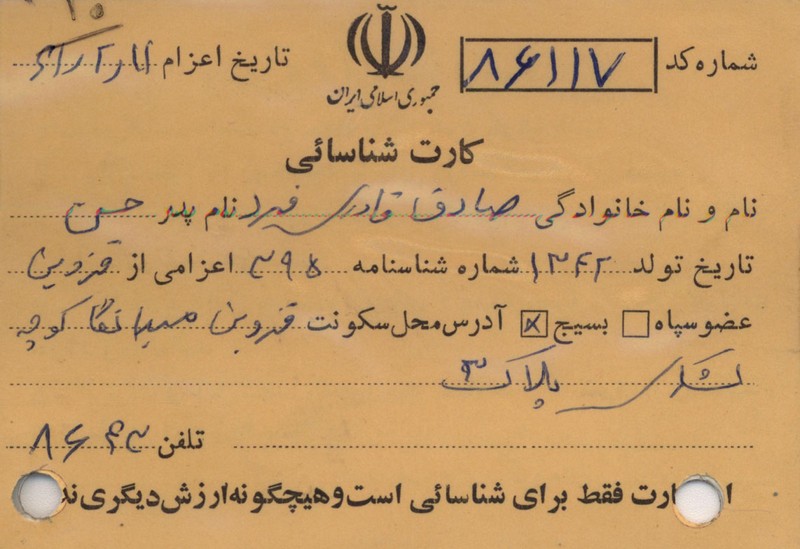 شماره کد ۸۶۱۱۷
تاریخ اعزام
جمهوری اسلامی ایران
کارت شناسائی
نام و نام خانوادگی صادق قادری فرد نام پدر حسن
تاریخ تولد ۱۳۴۲ شماره شناسنامه ۳۹۵ اعزامی از قزوین
عضو سپاه بسیج آدرس محل سکونت قزوین کوچه
پلاک ۳
تلفن ۸۶۴۳
کارت فقط برای شناسائی است و هیچگونه ارزش دیگری